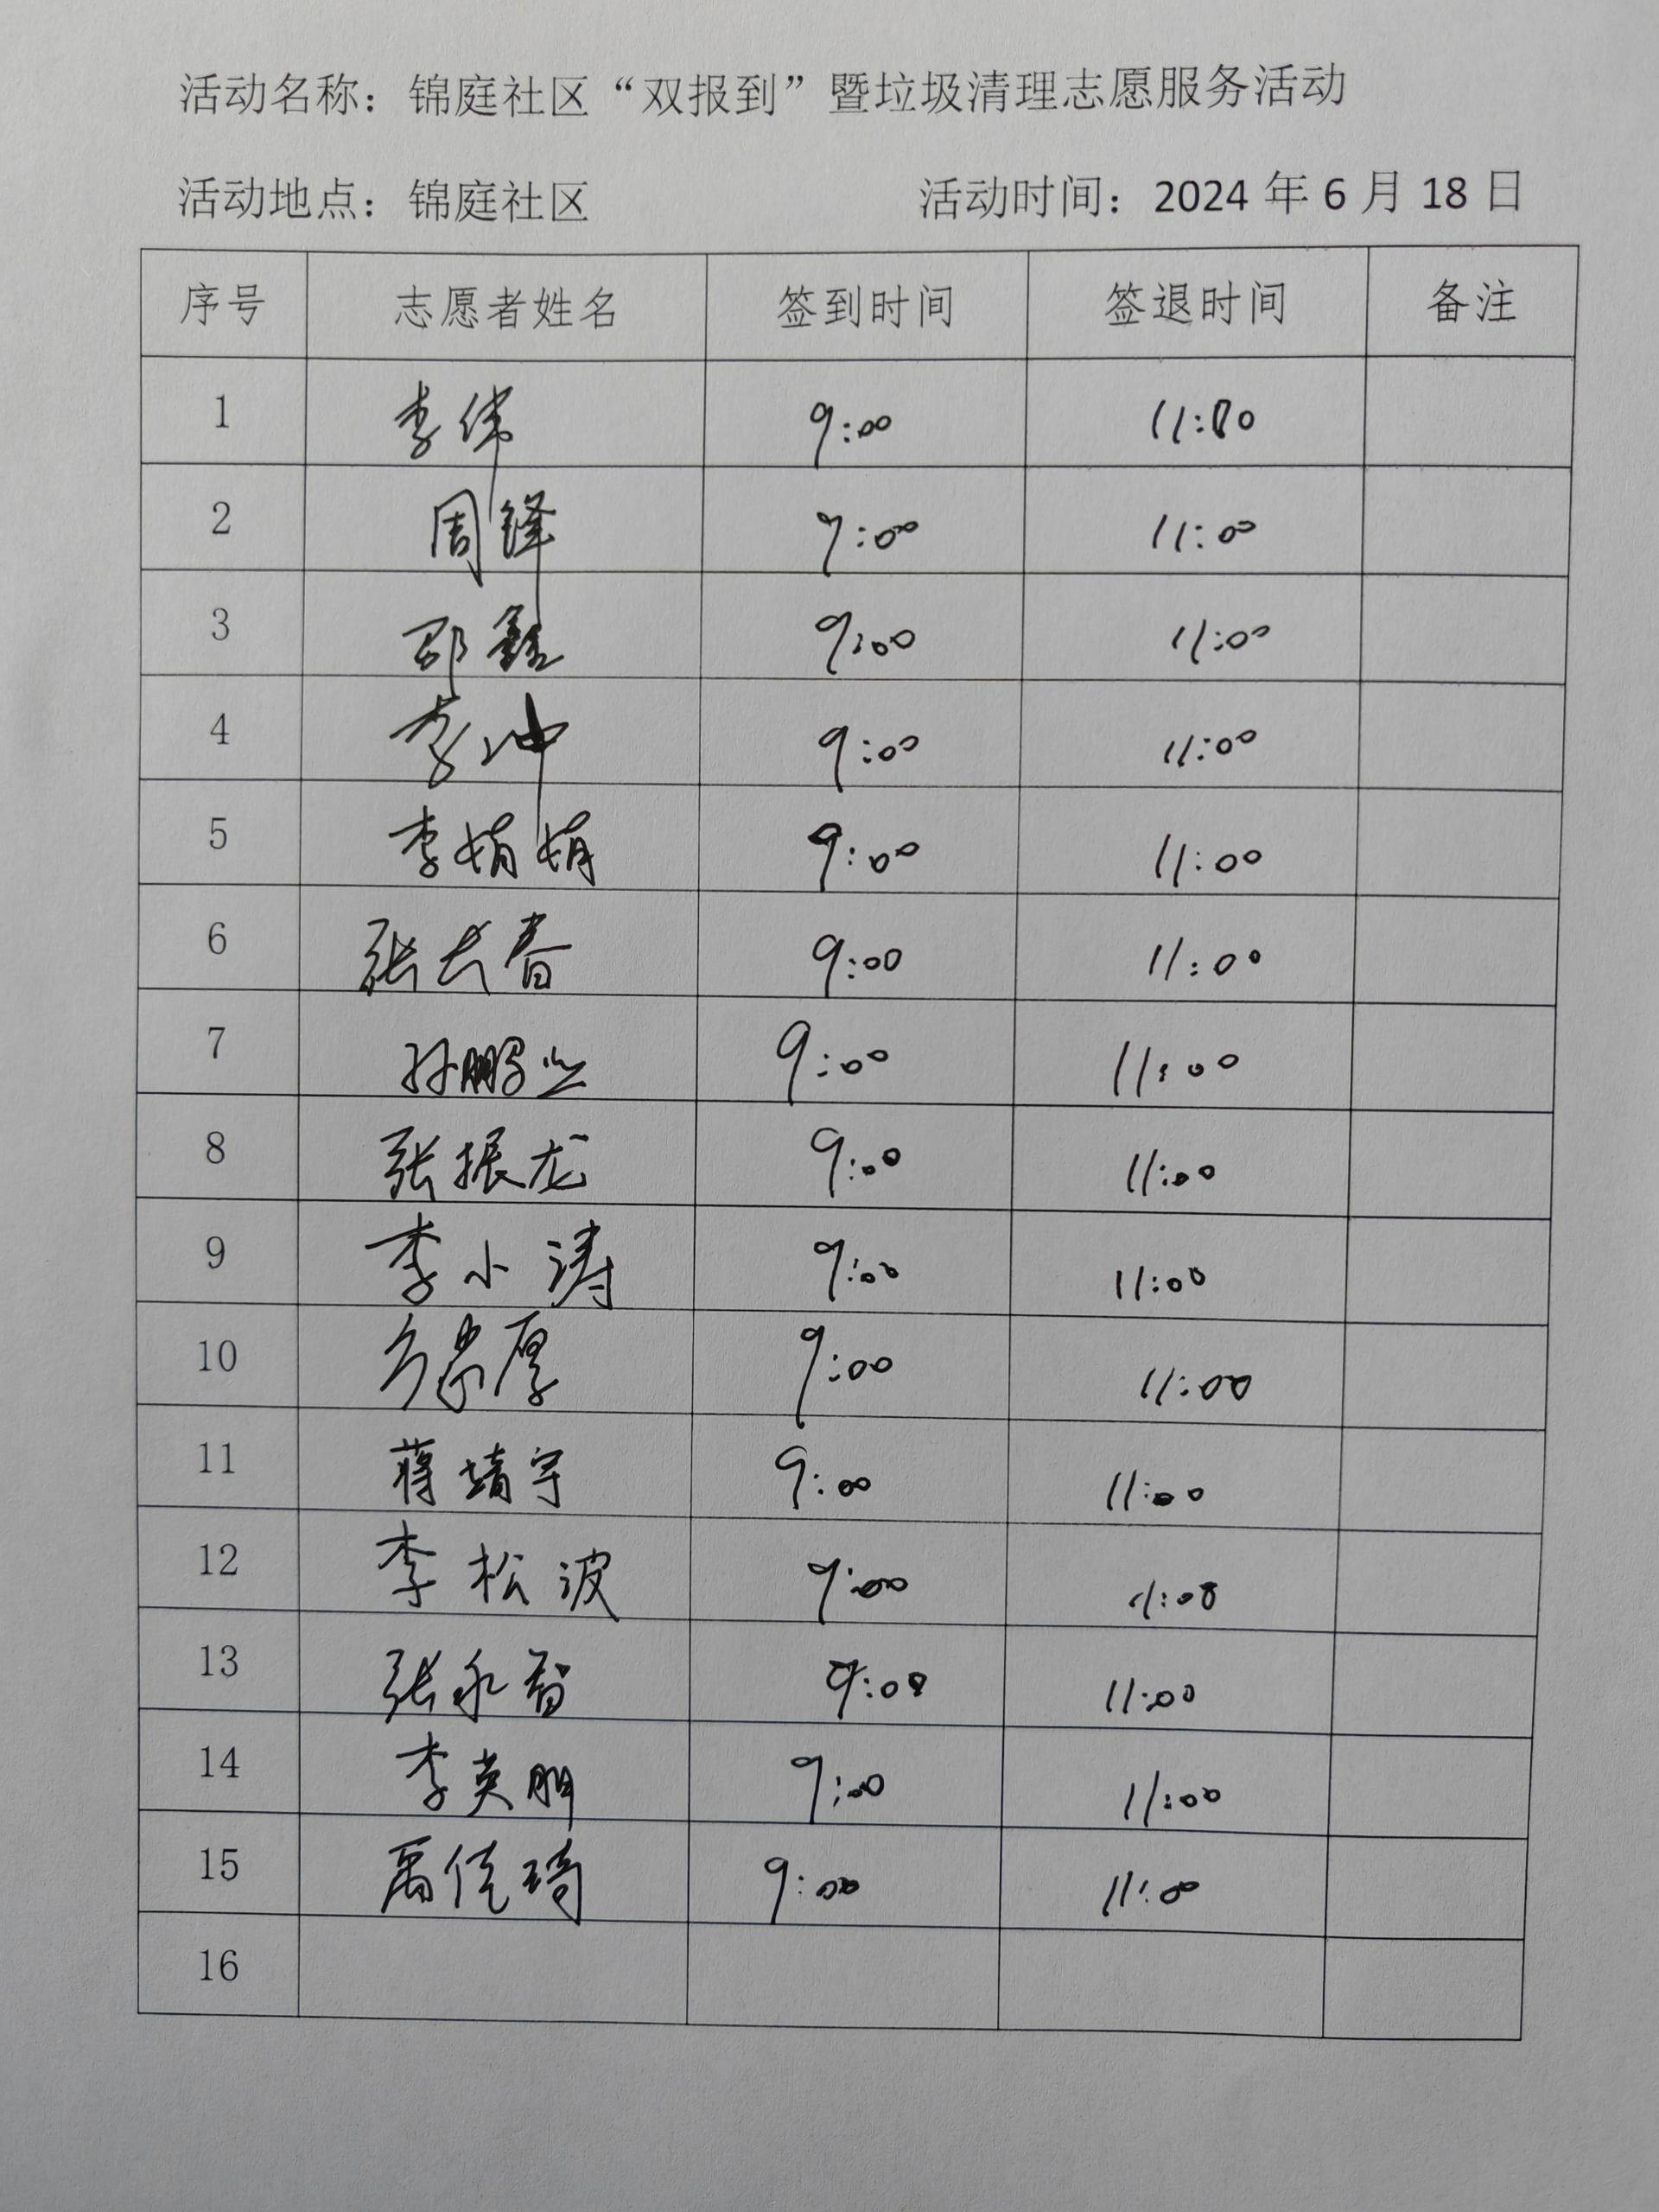 活动名称：锦庭社区“双报到”暨垃圾清理志愿服务活动
活动地点：锦庭社区 活动时间：2024 年 6 月 18 日
序号 志愿者姓名 签到时间 签退时间 备注
1 李伟 9:00 11:00
2 周锋 9:00 11:00
3 邵鑫 9:00 11:00
4 李冲 9:00 11:00
5 李娟娟 9:00 11:00
6 张长春 9:00 11:00
7 孙鹏 9:00 11:00
8 张振龙 9:00 11:00
9 李小涛 9:00 11:00
10 厚 9:00 11:00
11 蒋靖宇 9:00 11:00
12 李松波 9:00 11:00
13 张永智 9:00 11:00
14 李英 9:00 11:00
15 禹佳琦 9:00 11:00
16